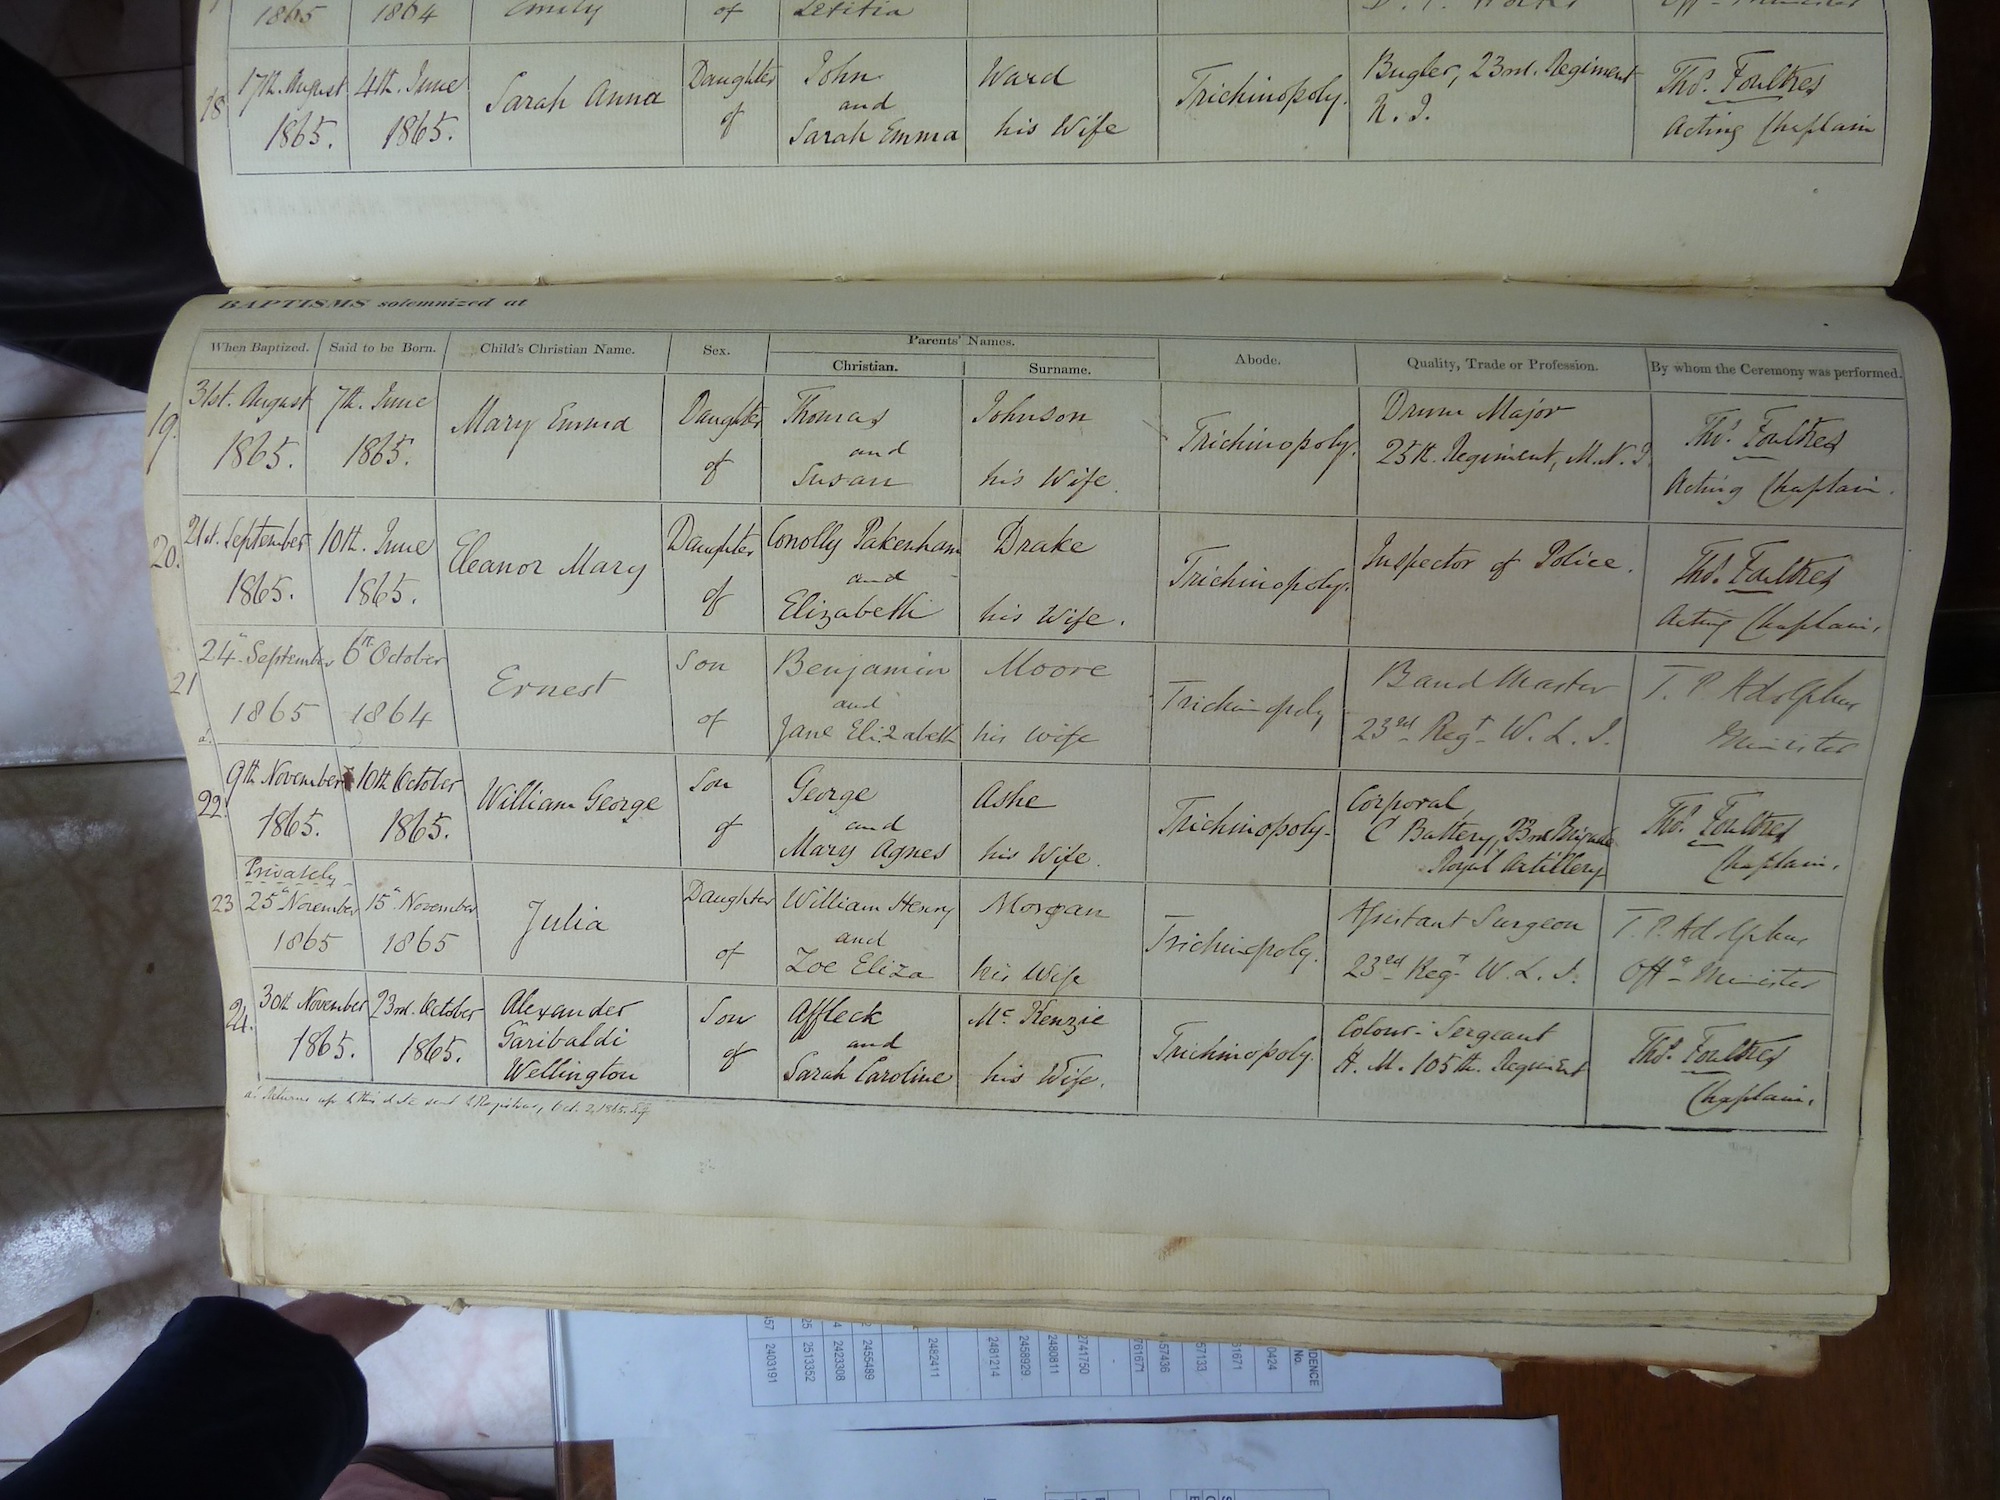 1865 1864 Emily of Letitia
18 17th. August 1865. 4th. June 1865. Sarah Anna Daughter of John and Sarah Emma Ward his Wife Trichinopoly. Bugler, 23rd. Regiment N. I. Thos. Foulkes Acting Chaplain
BAPTISMS solemnized at
When Baptized. Said to be Born. Child's Christian Name. Sex. Parents' Names. Christian. Surname. Abode. Quality, Trade or Profession. By whom the Ceremony was performed.
19. 31st. August 1865. 7th. June 1865. Mary Emma Daughter of Thomas and Susan Johnson his Wife. Trichinopoly. Drum Major 25th. Regiment, M.N.I. Thos. Foulkes Acting Chaplain.
20. 21st. September 1865. 10th. June 1865. Eleanor Mary Daughter of Conolly Pakenham and Elizabeth Drake his Wife. Trichinopoly. Inspector of Police. Thos. Foulkes Acting Chaplain.
21 24th September 1865 6th October 1864 Ernest Son of Benjamin and Jane Elizabeth Moore his wife Trichinopoly Band Master 23rd Regt W. L. I. T. P. Adolphus Minister
a.
22. 9th November 1865. 10th October 1865. William George Son of George and Mary Agnes Ashe his Wife. Trichinopoly- Corporal, C Battery, 23rd Brigade Royal Artillery Thos. Foulkes Chaplain.
23 Privately 25th November 1865 15th November 1865 Julia Daughter of William Henry and Zoe Eliza Morgan his Wife Trichinopoly. Assistant Surgeon 23rd Regt W. L. I. T. P. Adolphus Offg Minister
24. 30th November 1865. 23rd. October 1865. Alexander Garibaldi Wellington Son of Affleck and Sarah Caroline McKenzie his Wife. Trichinopoly. Colour-Sergeant H. M. 105th. Regiment Thos. Foulkes Chaplain.
a. Returns up to this date sent to Registrar, Oct. 2, 1865.
2403191
2513352
2423308
2455489
2482411
2481214
2458929
2480811
2741750
761671
57436
57133
51671
0424
DENCE No.